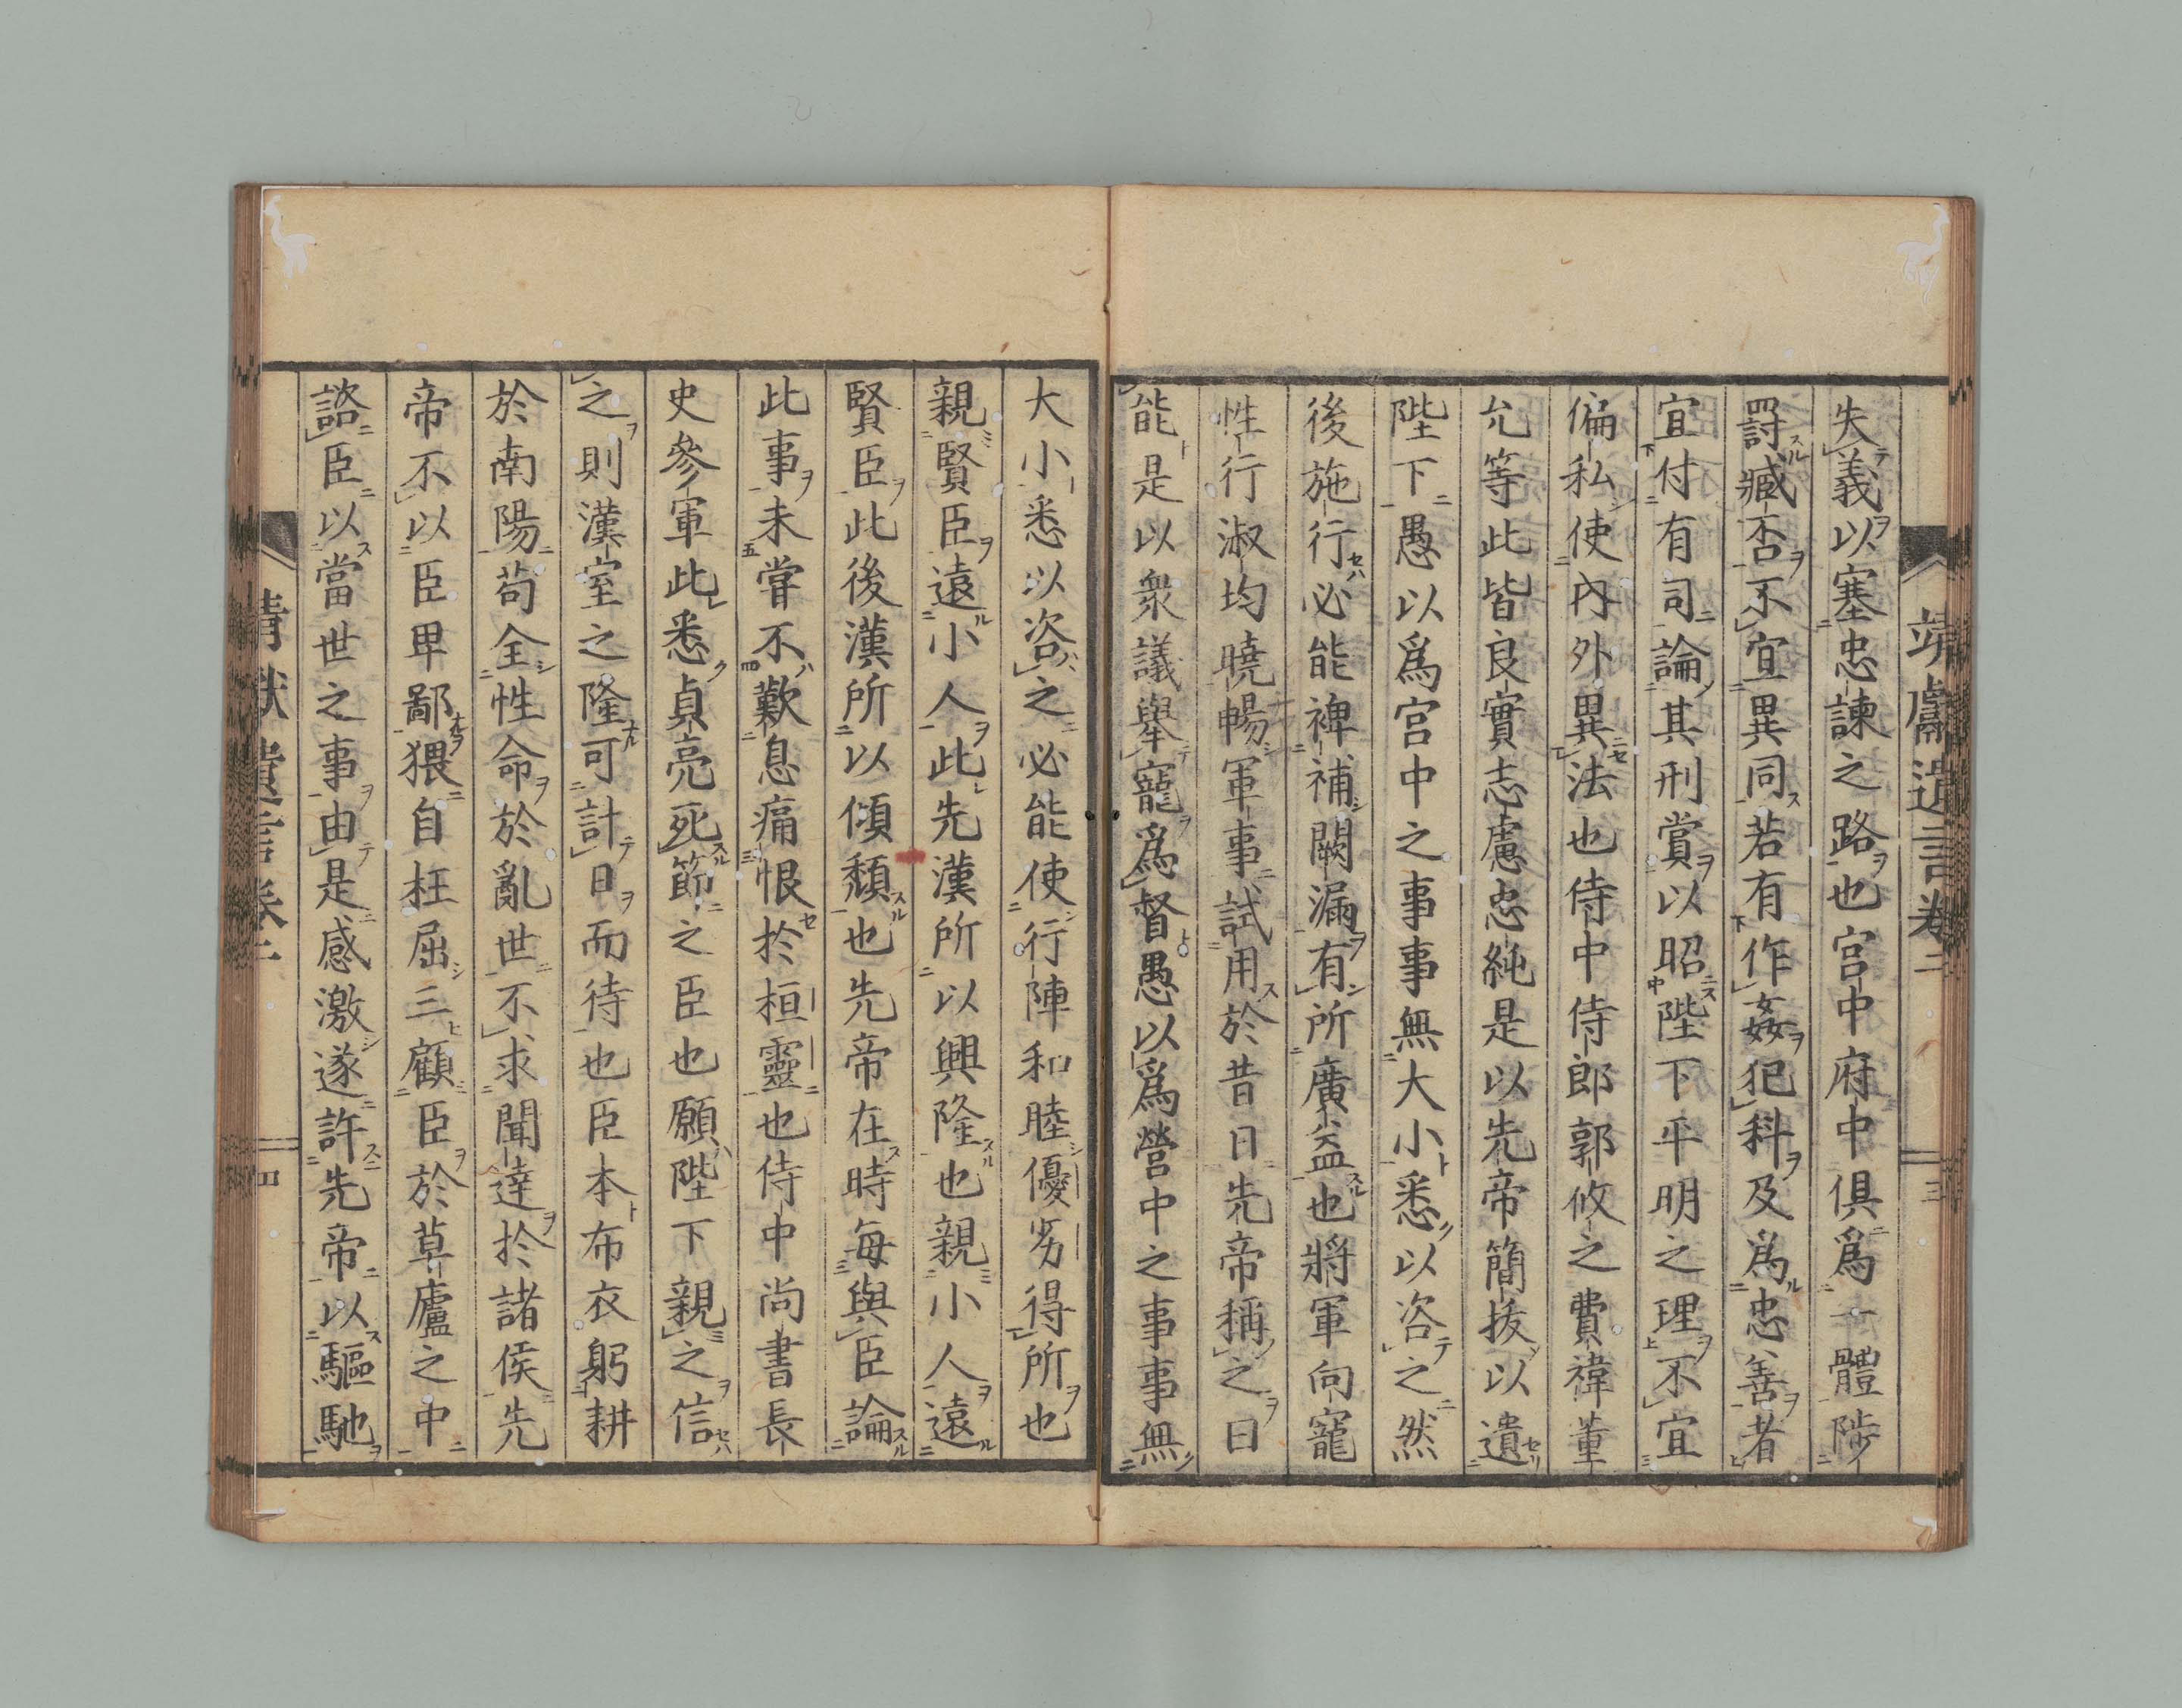 靖獻遺言卷二
三
失義以塞忠諫之路也宮中府中俱爲一體陟
罸臧否不宜異同若有作姦犯科及爲忠善者
宜付有司論其刑賞以昭陛下平明之理不宜
偏私使內外異法也侍中侍郎郭攸之費禕董
允等此皆良實志慮忠純是以先帝簡拔以遺
陛下愚以爲宮中之事事無大小悉以咨之然
後施行必能裨補闕漏有所廣益也將軍向寵
性行淑均曉暢軍事試用於昔日先帝稱之曰
能是以衆議擧寵爲督愚以爲營中之事事無
大小悉以咨之必能使行陣和睦優劣得所也
親賢臣遠小人此先漢所以興隆也親小人遠
賢臣此後漢所以傾頹也先帝在時每與臣論
此事未嘗不歎息痛恨於桓靈也侍中尚書長
史參軍此悉貞亮死節之臣也願陛下親之信
之則漢室之隆可計日而待也臣本布衣躬耕
於南陽苟全性命於亂世不求聞達於諸侯先
帝不以臣卑鄙猥自枉屈三顧臣於草廬之中
諮臣以當世之事由是感激遂許先帝以驅馳
靖獻遺言卷二
四